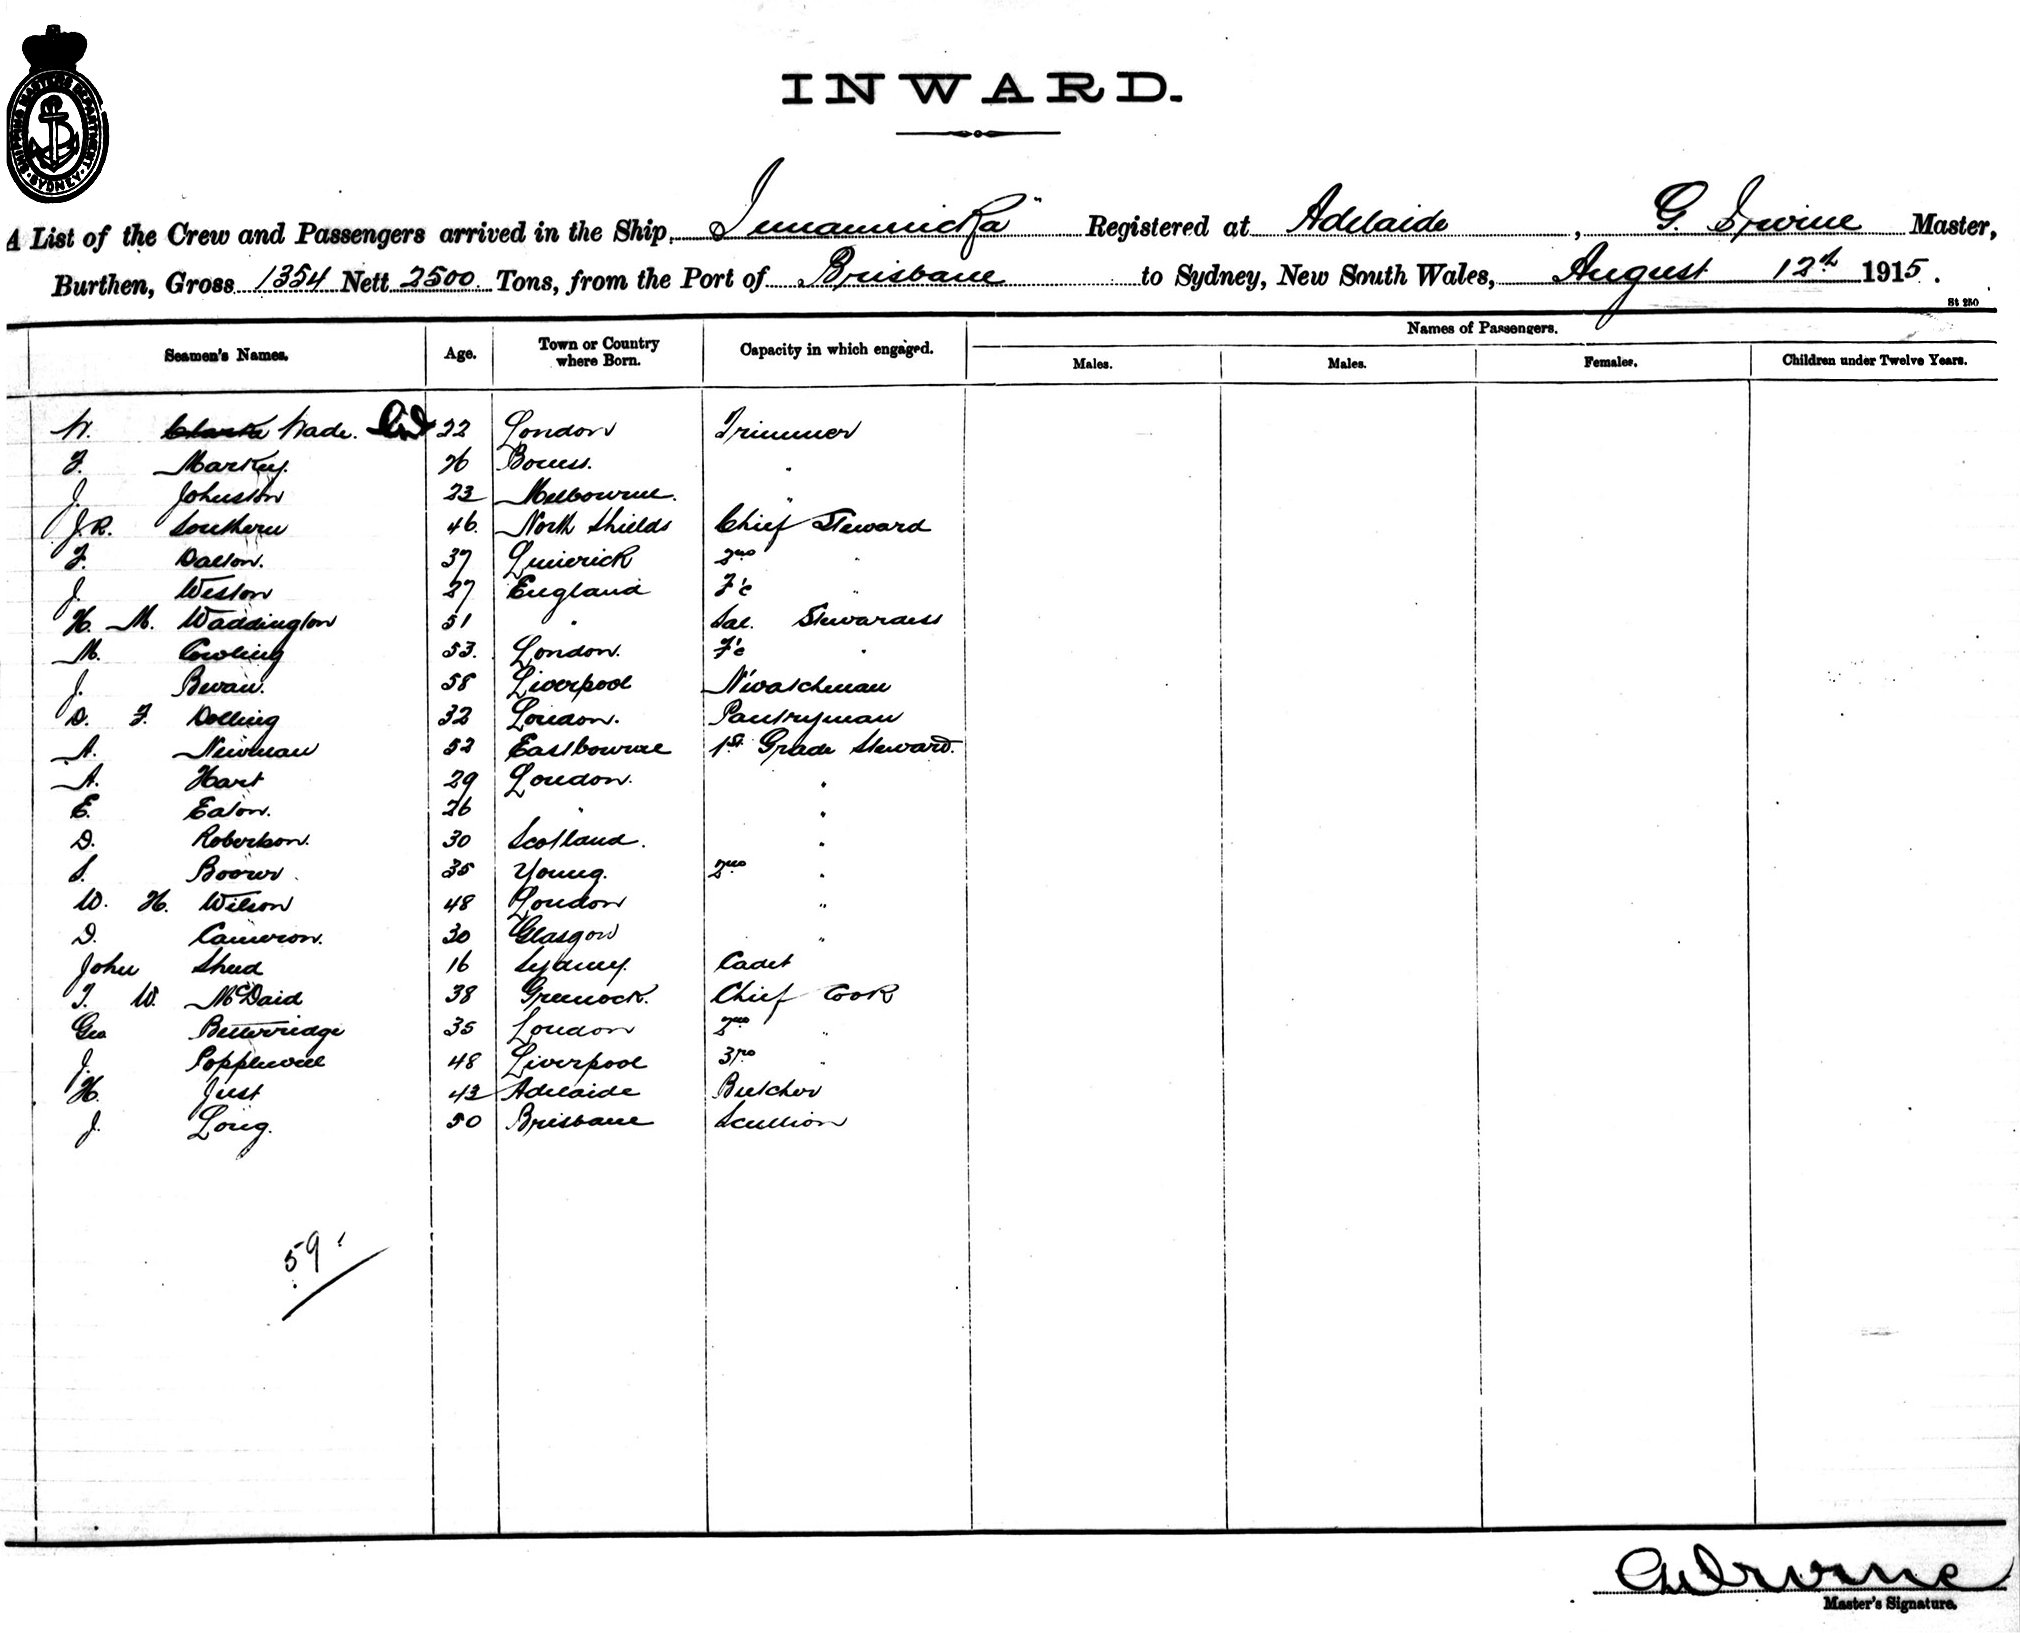 SHIPPING MASTERS DEPARTMENT · SYDNEY ·
INWARD.
A List of the Crew and Passengers arrived in the Ship, Innamincka" Registered at Adelaide, G. Irvine Master,
Burthen, Gross 1354 Nett 2500 Tons, from the Port of Brisbane to Sydney, New South Wales, August 12th 1915.
St 250
Seamen's Names. Age. Town or Country where Born. Capacity in which engaged. Names of Passengers.
Males. Males. Females. Children under Twelve Years.
W. Clarke Wade. 22 London Trimmer
F. Markey. 26 "
J. Johnston 23 Melbourne. "
J. R. Southern 46. North Shields Chief Steward
F. Dalton. 37 Limerick 2nd "
J. Weston 27 England F'c "
H. M. Waddington 51 " Sal. Stewardess
M. Cowling 53. London. F'c "
J. Bevan. 58 Liverpool N'watchman
D. F. Dolling 32 London. Pantryman
A. Newman 52 Eastbourne 1st Grade Steward.
A. Hart 29 London. "
E. Eaton. 26 " "
D. Robertson. 30 Scotland. "
S. 35 Young. 2nd "
W. H. Wilson 48 London "
D. Cameron. 30 Glasgow "
John Shed 16 Sydney. Cadet
T. W. McDaid 38 Greenock. Chief Cook
Geo Betteridge 35 London 2nd "
J. Popplewell 48 Liverpool 3rd "
H. Just 42 Adelaide Butcher
J. Long. 50 Brisbane Scullion
59
G Irvine
Master's Signature.